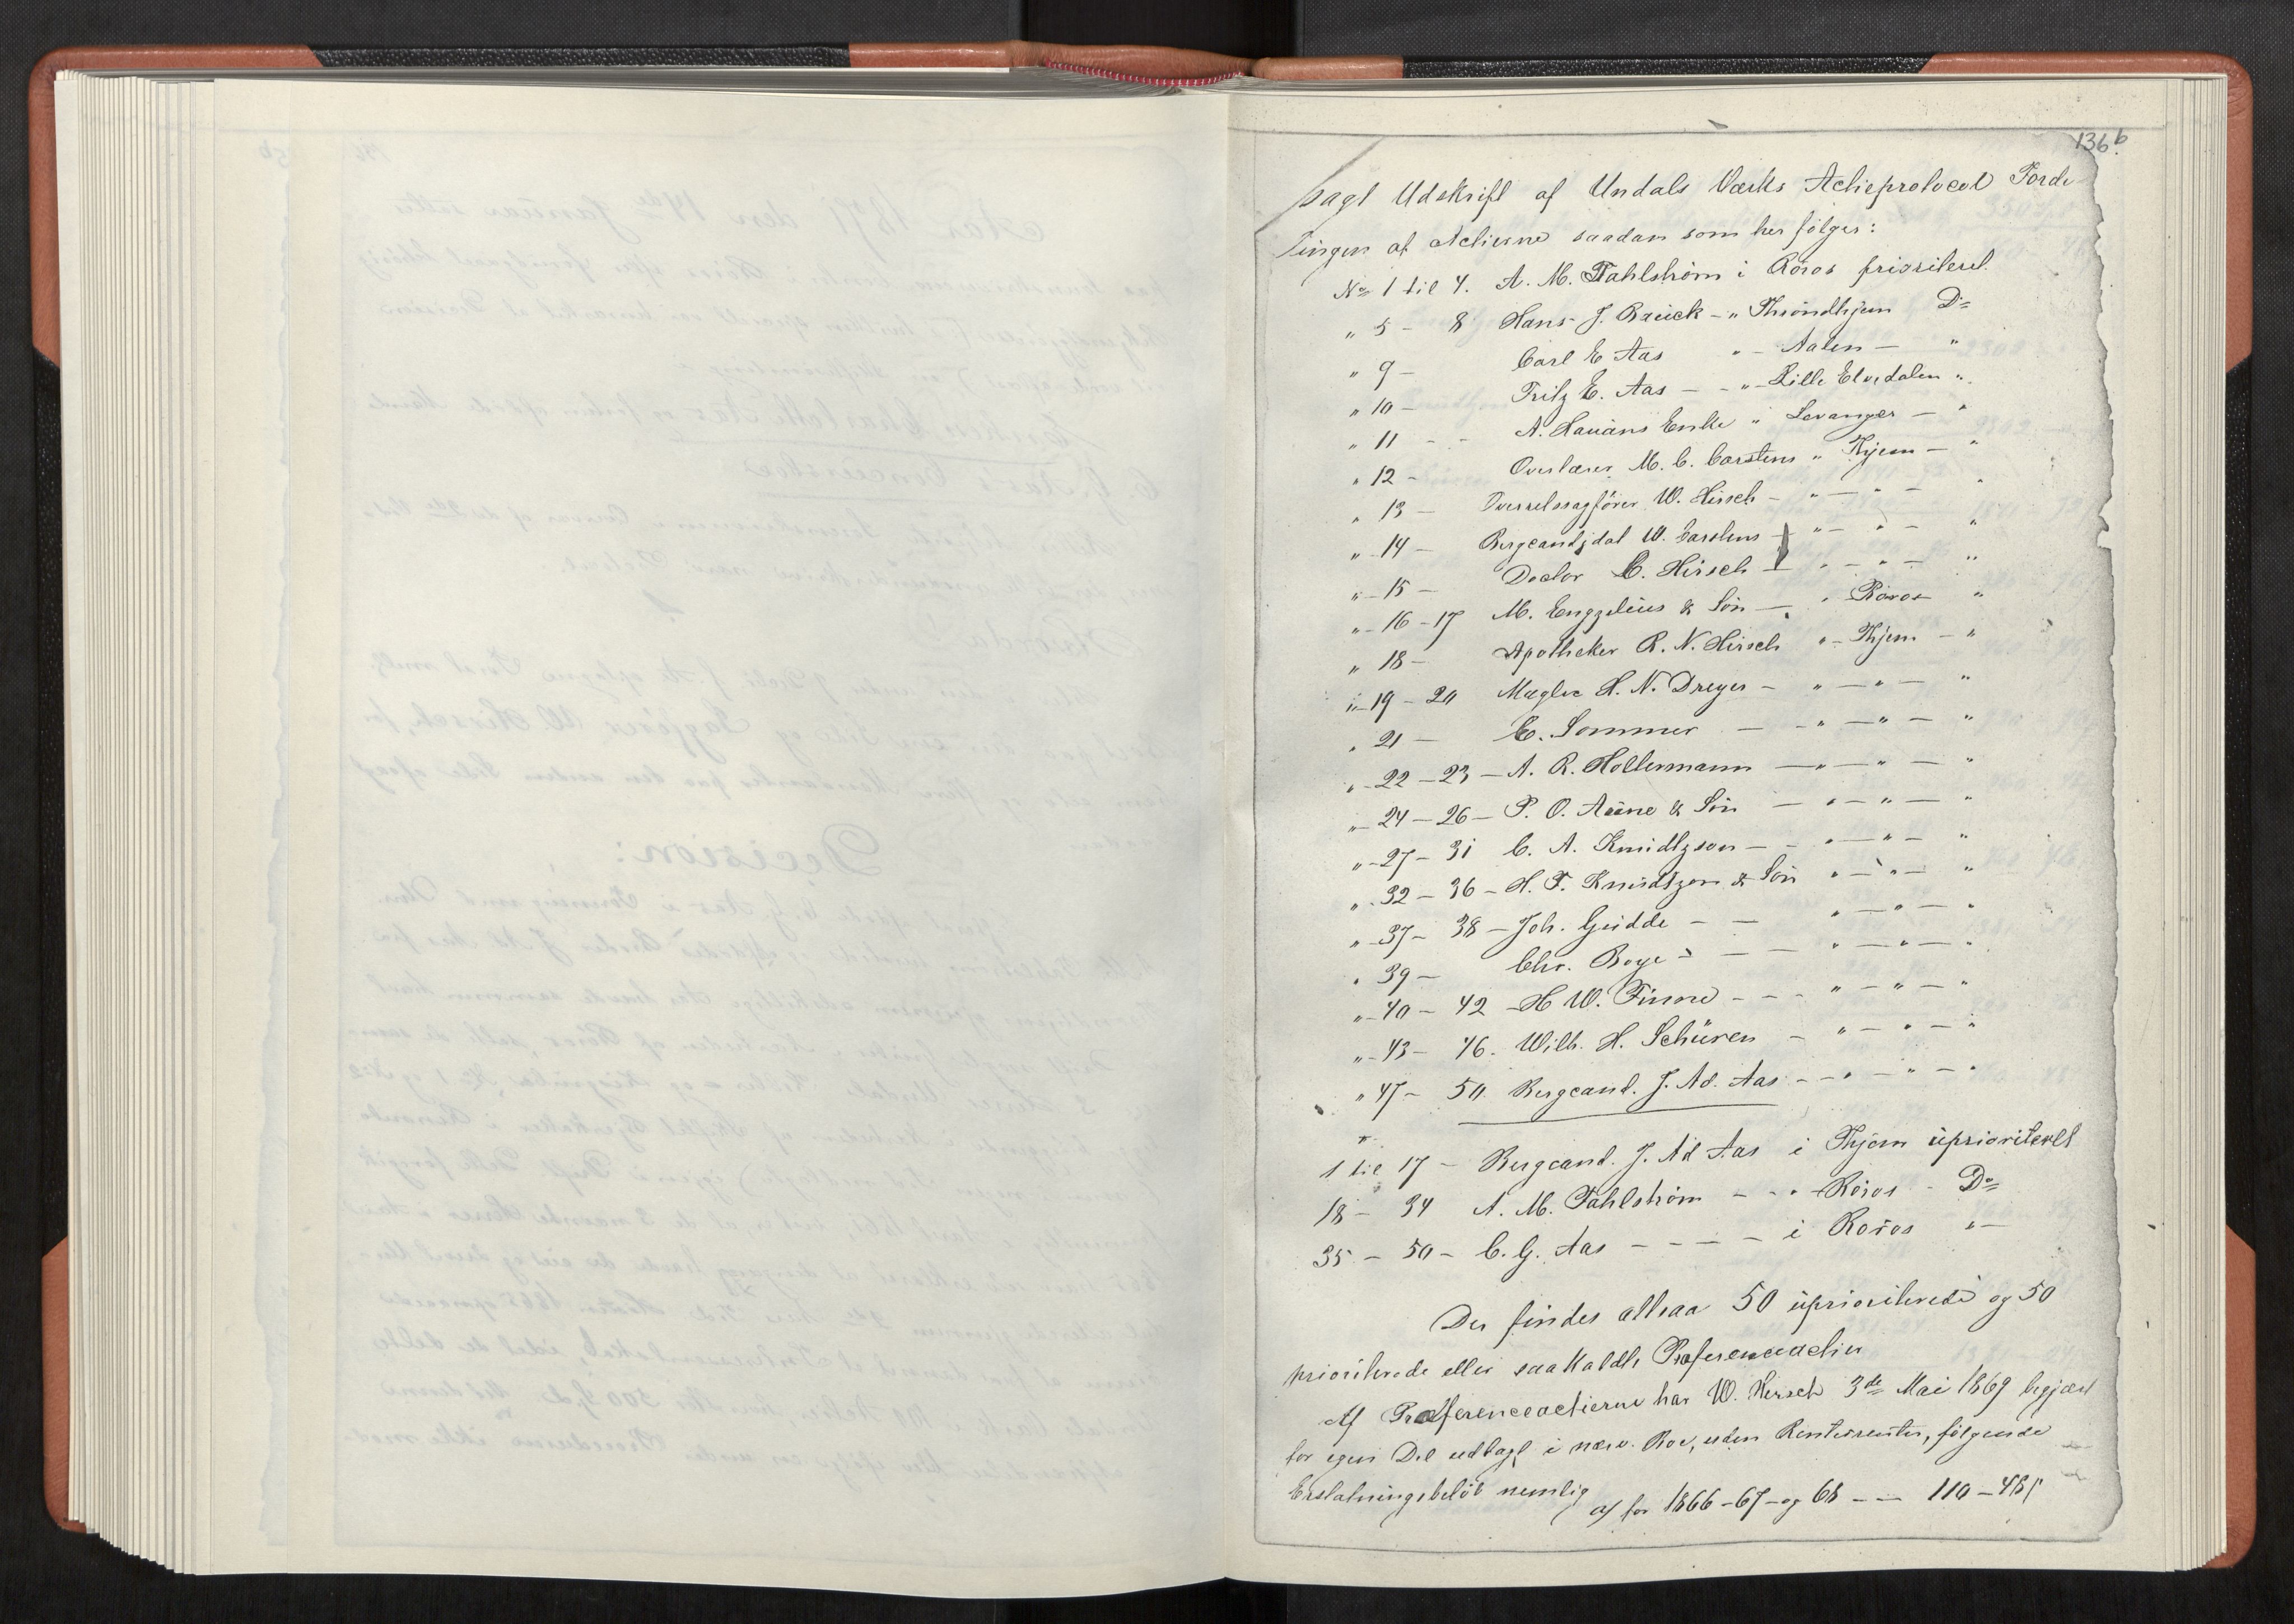 136b.
sagt Udskrift af Undals Værks Actieprotocol Forde-
lingen af Actierne saadan som her følger:
No 1 til 4. A. M. Fahlstrøm i Røros prioriteret.
" 5 - 8 Hans J. Bauck - " Throndhjem Do
" 9 - Carl E Aas " - Aalen - "
" 10 - Fritz E. Aas - - " - Lille Elvedalen "
" 11 - - A. Hauans Enke " Levanger - "
" 12 - Overlærer M. C. Carstens " Thjem - "
" 13 - Overretssagfører W. Hirsch - " - " - "
" 14 - Bergcandidat W. Carstens - " - " - "
" 15 - Doctor C. Hirsch - " - " - "
" 16 - 17 M. Engzelius & Søn - " Røros "
" 18 - Apotheker R. N. Hirsch " - Thjem - "
" 19 - 20 Mægler H. N. Dreyer - " - " - "
" 21 - C. Sommer - - " - " - "
" 22 - 23 - A. R. Hollermann - " - " - "
" 24 - 26 - P. O. Aune & Søn - " - " - "
" 27 - 31 C. A. Knudtzson - - " - " - "
" 32 - 36 - H. F. Knudtzon & Søn " - " - "
" 37 - 38 - Joh. Gudde - - " - " - "
" 39 - Chr. Boye - - - " - " - "
" 40 - 42 - H W. Finne - - - " - " - "
" 43 - 46. Wilh. H. Schüren - " - " - "
" 47 - 50. Bergcand. J. Ad. Aas - - " - " - "
1 til 17 - Bergcand. J. Ad Aas i Thjem uprioriteret
18 - 34 A. M. Fahlstrøm - - " - Røros - Do
35 - 50 - C. G. Aas - - - - i Røros " -
Der findes altsaa 50 uprioriterede og 50
prioriterede eller saakaldte Præferenceactier
Af Præferenceactierne har W. Hirsch 3de Mai 1869 begjært
for egen Del udlagt i nærv. Boe, uden Rentesrenter, følgende
Erstatningsbeløb nemlig
a/ for 1866 - 67 - og 68 - - 110 - 48 s